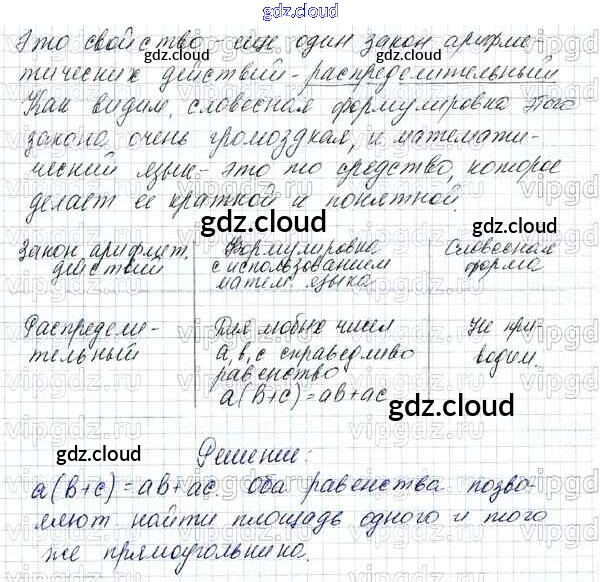 gdz.cloud
Это свойство - еще один закон арифме-
тических действий - распределительный
Как видим, словесная формулировка этого
закона очень громоздкая, и математи-
ческий язык - это то средство, которое
делает ее краткой и понятной.
gdz.cloud
Закон арифмет. Формулировка Словесная
действий с использованием форма
матем. языка
Распредели- Для любых чисел Не при-
тельный a, в, с справедливо водим.
равенство
a(в+c)=aв+ac
gdz.cloud
Решение:
a(в+c)=aв+ac. Оба равенства позво-
ляют найти площадь одного и того
же прямоугольника.
gdz.cloud